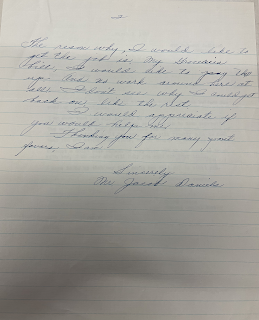 2
The reason why, I would like to
get the job is my Groceries
bill. I would like to pay the
up. And no work around here at
all. I dont see why I could get
back on, like the rest.
I would appreciate if
you would help me.
Thanking you for many past
favors, I am.
Sincerely
Mr Jacob Daniels